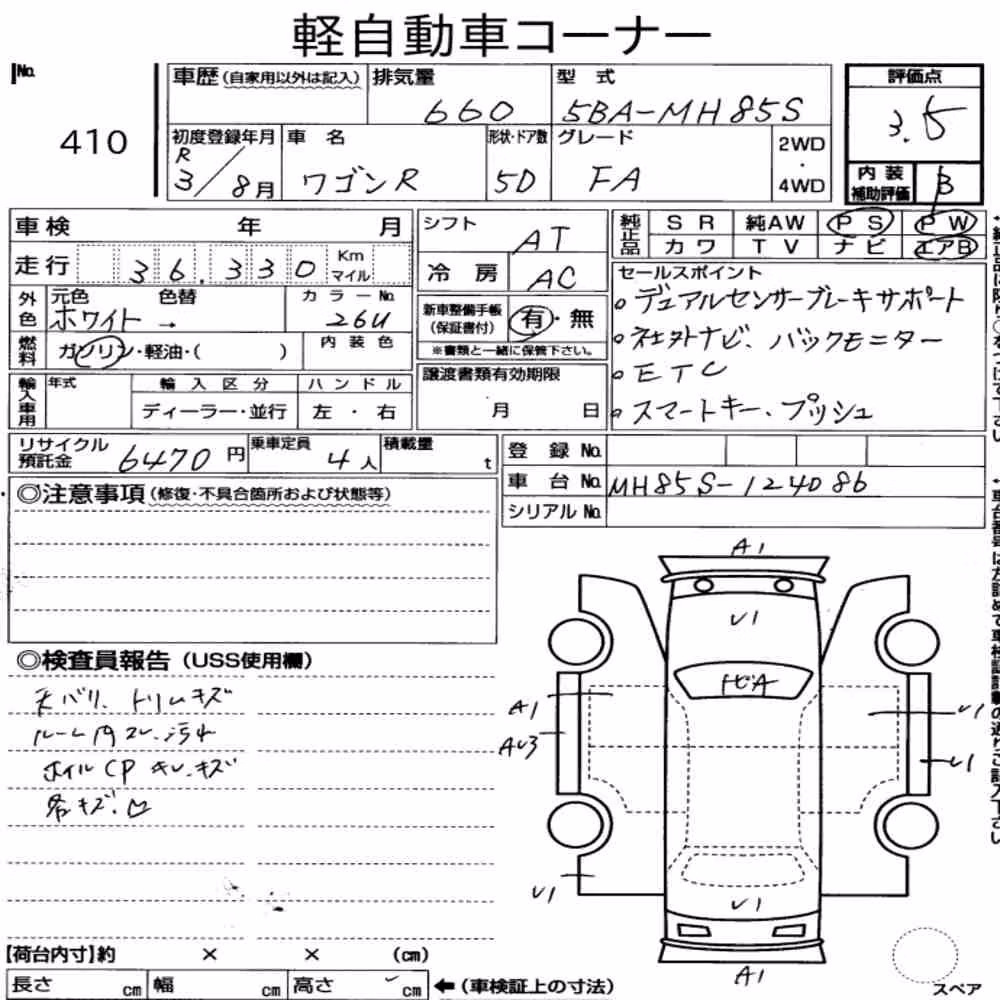 軽自動車コーナー
No.
410
車歴(自家用以外は記入)
排気量
660
型式
5BA-MH85S
評価点
3.5
初度登録年月
R
3/8月
車名
ワゴンR
形状・ドア数
5D
グレード
FA
2WD
・
4WD
内装
補助評価
B
車検 年 月
走行 36.330 Km
マイル
シフト
AT
冷房
AC
純正品
SR 純AW PS PW
カワ TV ナビ エアB
セールスポイント
。デュアルセンサーブレーキサポート
。社外ナビ、バックモニター
。ETC
。スマートキー、プッシュ
外色
元色 色替
ホワイト→
カラーNo.
26U
新車整備手帳
(保証書付)
有・無
※書類と一緒に保管下さい。
燃料
ガソリン・軽油・( )
内装色
譲渡書類有効期限
月 日
輸入車用
年式
輸入区分
ディーラー・並行
ハンドル
左・右
リサイクル
預託金
6470円
乗車定員
4人
積載量
t
登録No.
車台No.
MH85S-124086
シリアルNo.
◎注意事項(修復・不具合箇所および状態等)
◎検査員報告(USS使用欄)
天バリ、トリムキズ
ルーム内スレ、汚れ
ホイルCPキレ、キズ
各キズ、凹
A1
U1
トビA
A1
AU3
U1
U1
U1
U1
A1
【荷台内寸】約 × × (cm)
長さ cm 幅 cm 高さ cm ←(車検証上の寸法)
スペア